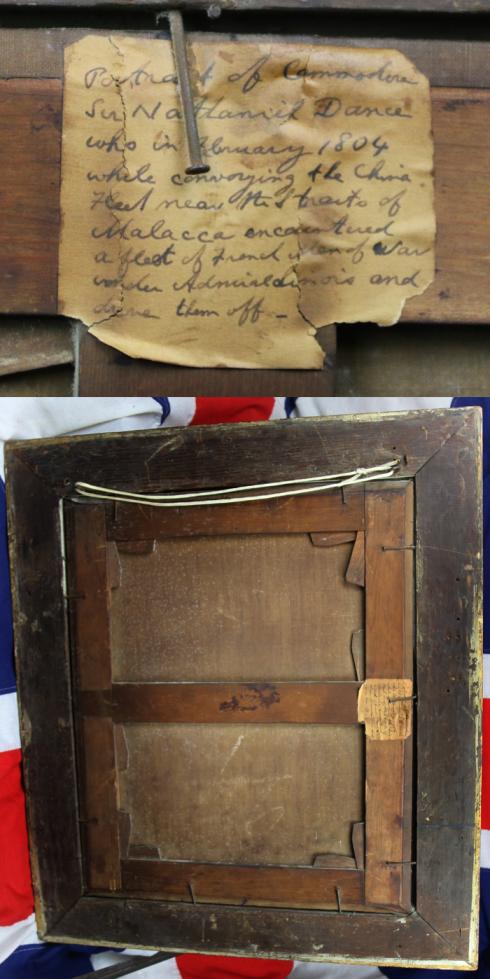 Portrait of Commodore
Sir Nathaniel Dance
who in February 1804
while convoying the China
Fleet near the Straits of
Malacca encountered
a fleet of French men of War
under Admiral Linois and
drove them off. -